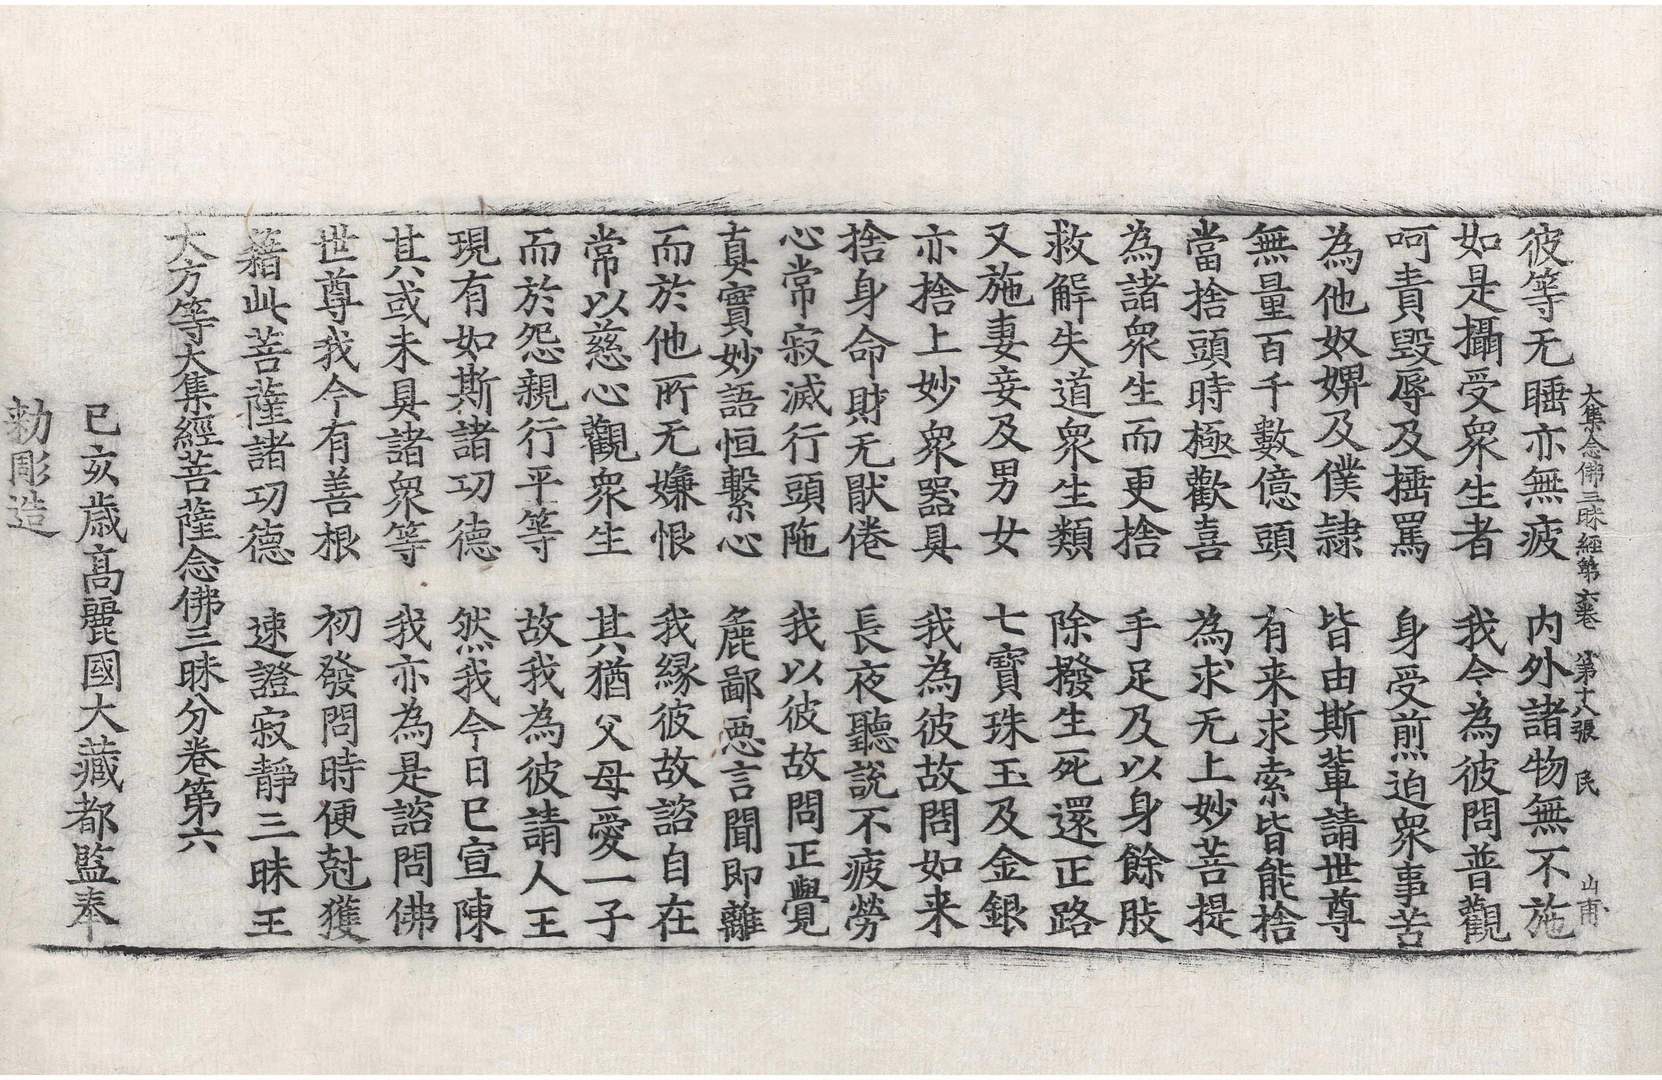 大集念佛三昧經第六卷 第十八張 民 山甫
彼等无睡亦無疲 内外諸物無不施
如是攝受衆生者 我今為彼問普觀
呵責毀辱及捶罵 身受煎迫衆事苦
為他奴婢及僕隷 皆由斯輩請世尊
無量百千數億頭 有来求索皆能捨
當捨頭時極歡喜 為求无上妙菩提
為諸衆生而更捨 手足及以身餘肢
救解失道衆生類 除撥生死還正路
又施妻妾及男女 七寶珠玉及金銀
亦捨上妙衆器具 我為彼故問如来
捨身命財无猒倦 長夜聽說不疲勞
心常寂滅行頭陁 我以彼故問正覺
真實妙語恒繫心 麁鄙惡言聞即離
而於他所无嫌恨 我縁彼故諮自在
常以慈心觀衆生 其猶父母愛一子
而於怨親行平等 故我為彼請人王
現有如斯諸功德 然我今日已宣陳
其或未具諸衆等 我亦為是諮問佛
世尊我今有善根 初發問時便尅獲
藉此菩薩諸功德 速證寂靜三昧王
大方等大集經菩薩念佛三昧分卷第六
己亥歲高麗國大藏都監奉
勅彫造